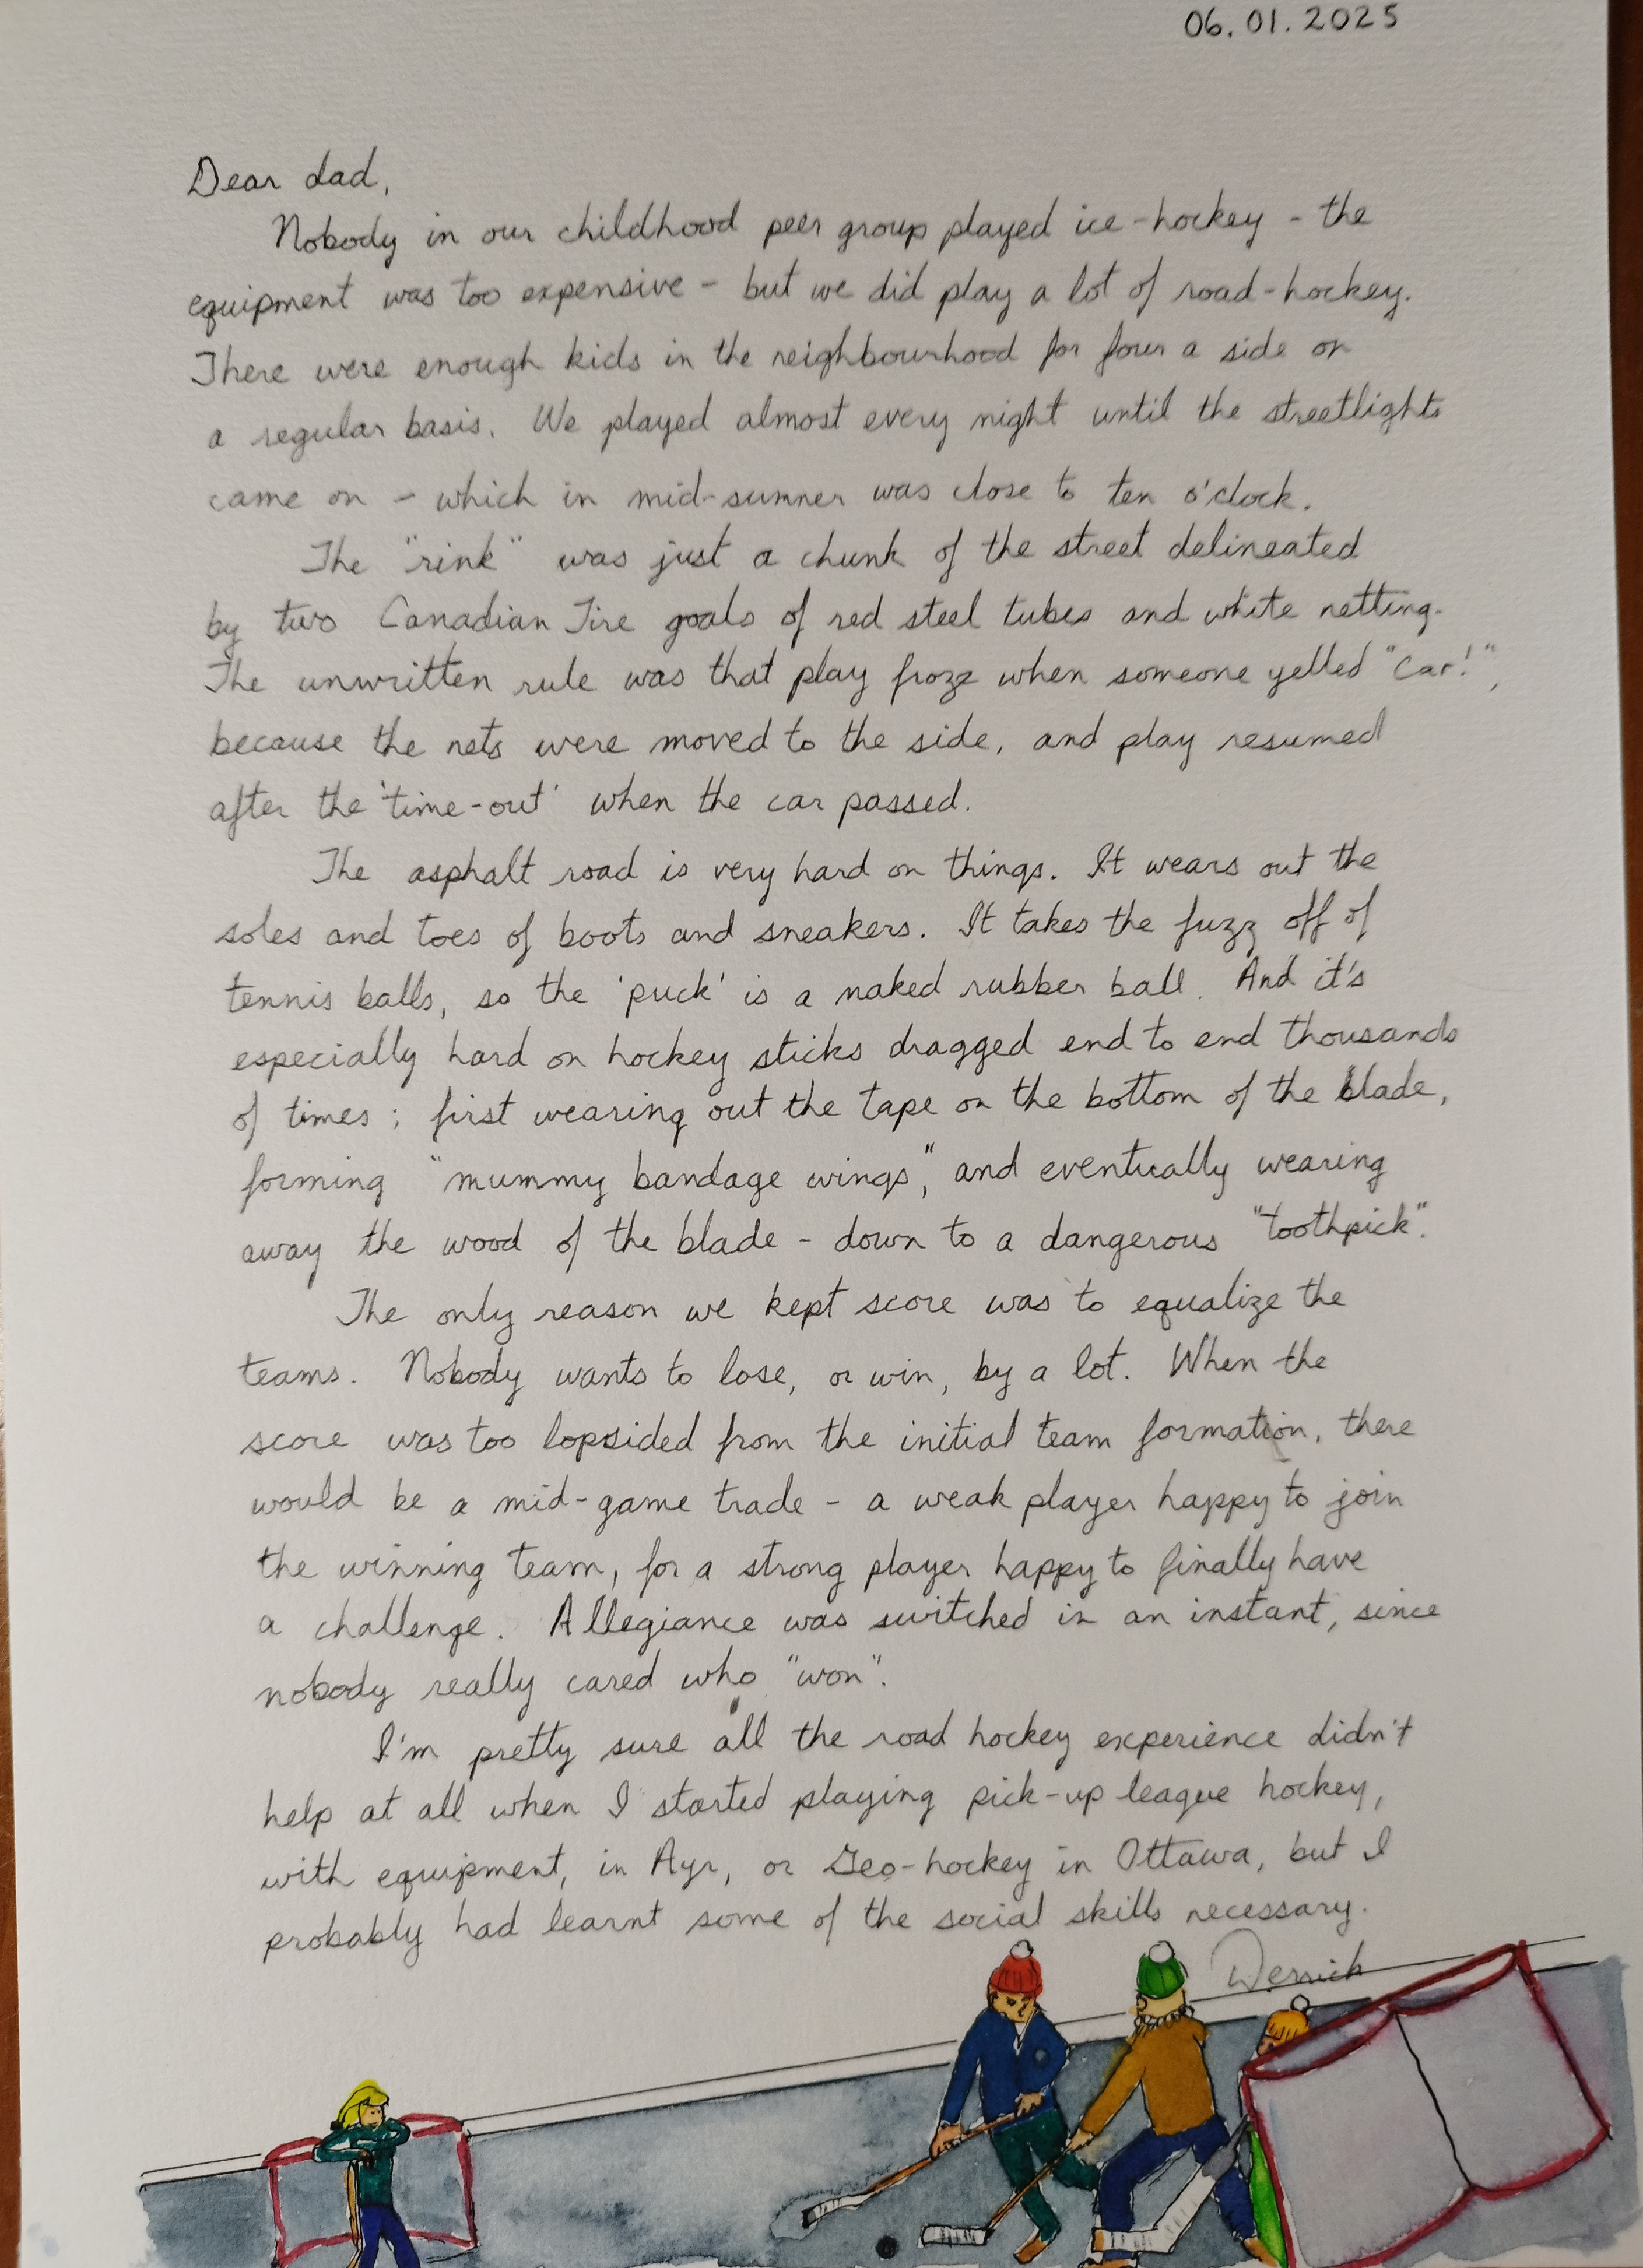 06.01.2025
Dear dad,
Nobody in our childhood peer group played ice-hockey - the
equipment was too expensive - but we did play a lot of road-hockey.
There were enough kids in the neighbourhood for four a side on
a regular basis. We played almost every night until the streetlights
came on - which in mid-summer was close to ten o'clock.
The "rink" was just a chunk of the street delineated
by two Canadian Tire goals of red steel tubes and white netting.
The unwritten rule was that play froze when someone yelled "Car!",
because the nets were moved to the side, and play resumed
after the 'time-out' when the car passed.
The asphalt road is very hard on things. It wears out the
soles and toes of boots and sneakers. It takes the fuzz off of
tennis balls, so the 'puck' is a naked rubber ball. And it's
especially hard on hockey sticks dragged end to end thousands
of times; first wearing out the tape on the bottom of the blade,
forming "mummy bandage wings", and eventually wearing
away the wood of the blade - down to a dangerous "toothpick".
The only reason we kept score was to equalize the
teams. Nobody wants to lose, or win, by a lot. When the
score was too lopsided from the initial team formation, there
would be a mid-game trade - a weak player happy to join
the winning team, for a strong player happy to finally have
a challenge. Allegiance was switched in an instant, since
nobody really cared who "won".
I'm pretty sure all the road hockey experience didn't
help at all when I started playing pick-up league hockey,
with equipment, in Ayr, or Geo-hockey in Ottawa, but I
probably had learnt some of the social skills necessary.
Derrick